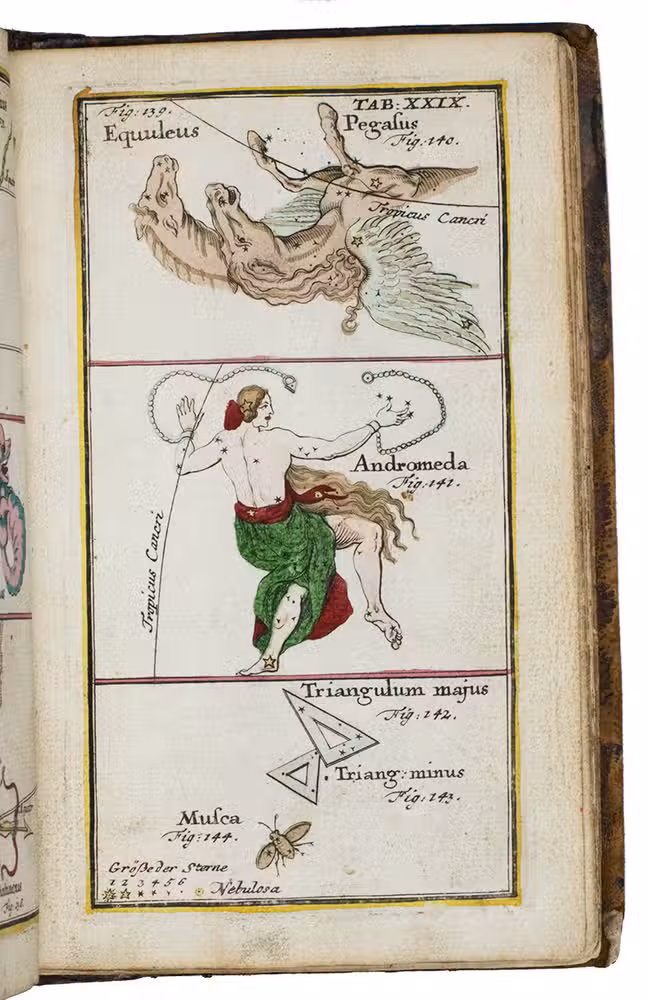 TAB: XXIX.
Fig: 139.
Equuleus
Pegaſus
Fig: 140.
Tropicus Cancri
Andromeda
Fig: 141.
Tropicus Cancri
Triangulum majus
Fig: 142.
Triang: minus
Fig: 143.
Muſca
Fig: 144.
Größe der Sterne
1 2 3 4 5 6
Nebulosa